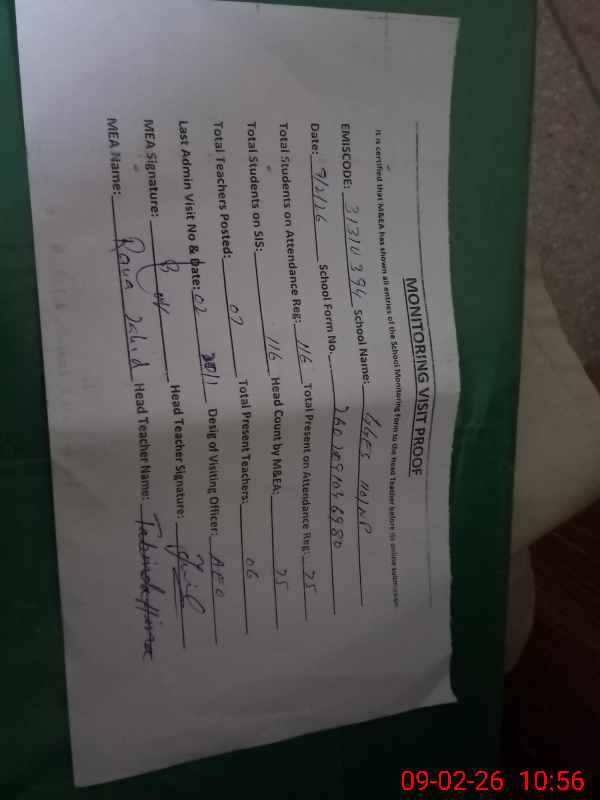 MONITORING VISIT PROOF
It is certified that M&EA has shown all entries of the School Monitoring Form to the Head Teacher before its online submission
EMISCODE: 31310394 School Name: GGES 110/NP
Date: 9/2/16 School Form No. 2602091056980
Total Students on Attendance Reg: 116 Total Present on Attendance Reg: 75
Total Students on SIS: 116 Head Count by M&EA: 75
Total Teachers Posted: 07 Total Present Teachers: 06
Last Admin Visit No & date: 02 Desig of Visiting Officer: AEO
MEA Signature: Head Teacher Signature:
MEA Name: Rana Zahid Head Teacher Name:
09-02-26 10:56